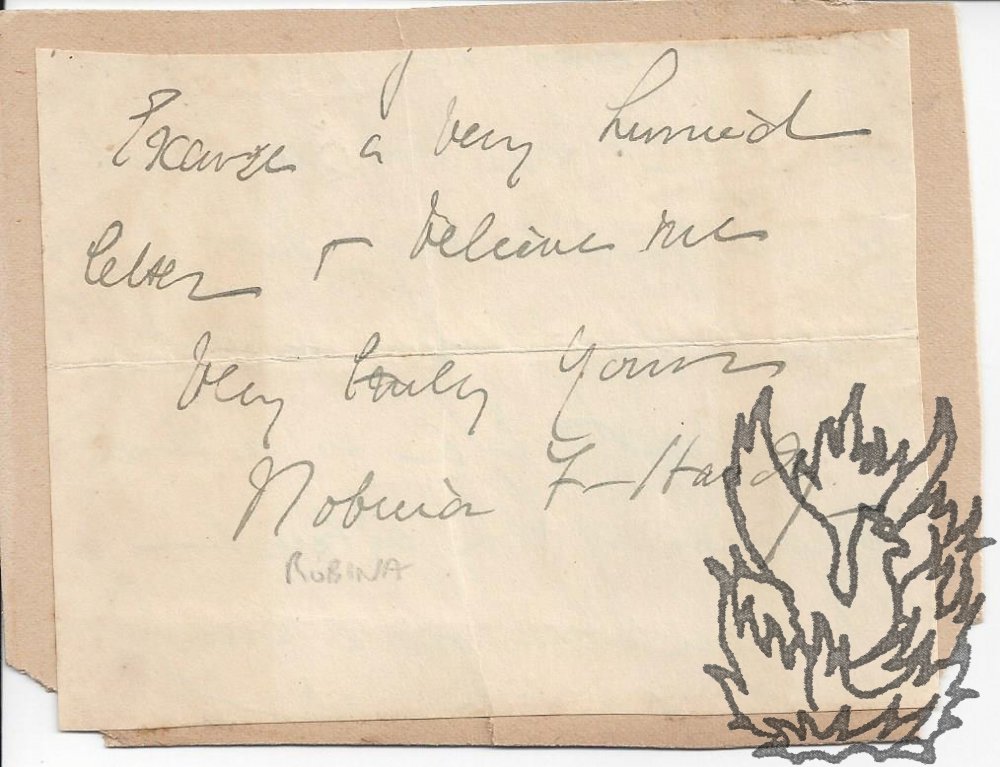 Excuse a very hurried
letter & believe me
Very truly yours
Robina F Hardy
ROBINA